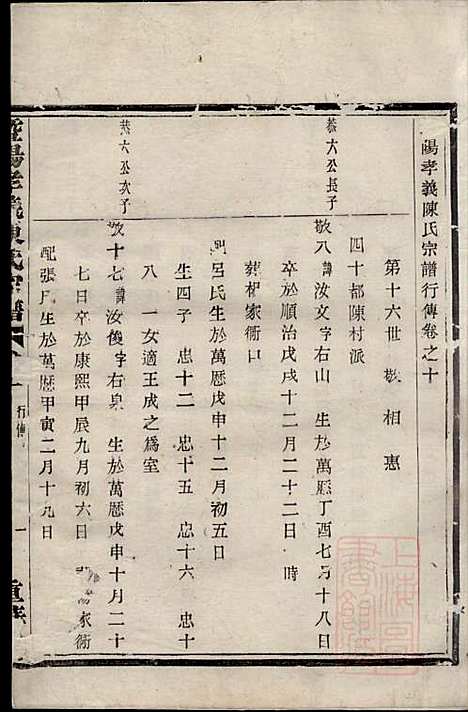 陽孝義陳氏宗譜行傳卷之十
第十六世 敬 相 惠
四十都陳村派
恭六公長子
敬八 諱 汝文 字 右山 生於萬曆丁酉七月十八日
卒於順治戊戌十二月二十二日 時
葬 家衕口
配呂氏生於萬曆戊申十二月初五日
生四子 忠十二 忠十五 忠十六 忠十
八 一女適王成之為室
恭六公次子
敬十七 諱 汝俊 字 右泉 生於萬曆戊申十月二十
七日卒於康熙甲辰九月初六日 家衕
配張氏生於萬曆甲寅二月十九日
暨陽孝義陳氏宗譜
行傳
一